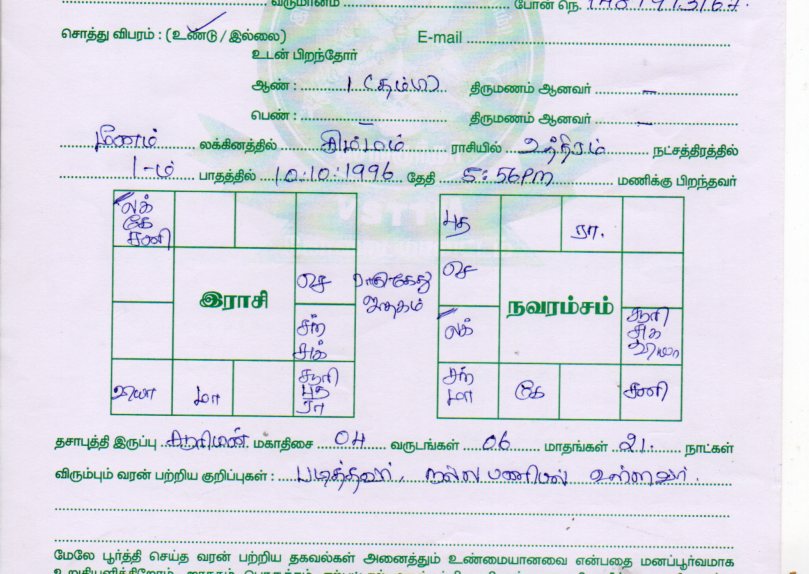 வருமானம் போன் நெ.
சொத்து விபரம் : (உண்டு / இல்லை) E-mail
உடன் பிறந்தோர்
ஆண் : 1 (தம்பி) திருமணம் ஆனவர் –
பெண் : – திருமணம் ஆனவர் –
மீனம் லக்கினத்தில் சிம்மம் ராசியில் உத்திரம் நட்சத்திரத்தில்
1-ம் பாதத்தில் 10:10:1996 தேதி 5:56PM மணிக்கு பிறந்தவர்
லக் கே சனி
புத ரா.
செ ராகு கேது ஜாதகம் செ
இராசி நவரம்சம்
சந் சுக் லக் சூரி சுக வியா
வியா மா சூரி புத ரா சந் மா கே சனி
தசாபுத்தி இருப்பு சூரியன் மகாதிசை 04 வருடங்கள் 06 மாதங்கள் 21. நாட்கள்
விரும்பும் வரன் பற்றிய குறிப்புகள் : படித்தவர், நல்ல பணியில் உள்ளவர்.
மேலே பூர்த்தி செய்த வரன் பற்றிய தகவல்கள் அனைத்தும் உண்மையானவை என்பதை மனப்பூர்வமாக